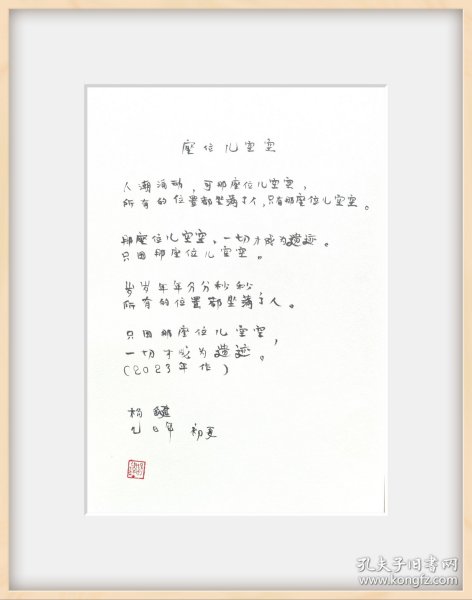 座位儿空空
人潮汹涌，可那座位儿空空，
所有的位置都坐满了人，只有那座位儿空空。
那座位儿空空，一切才成为遗迹。
只因那座位儿空空。
岁岁年年分分秒秒
所有的位置都坐满了人。
只因那座位儿空空，
一切才成为遗迹。
(2023年作)
杨键
乙巳年 初夏
孔夫子旧书网
www.kongfz.com